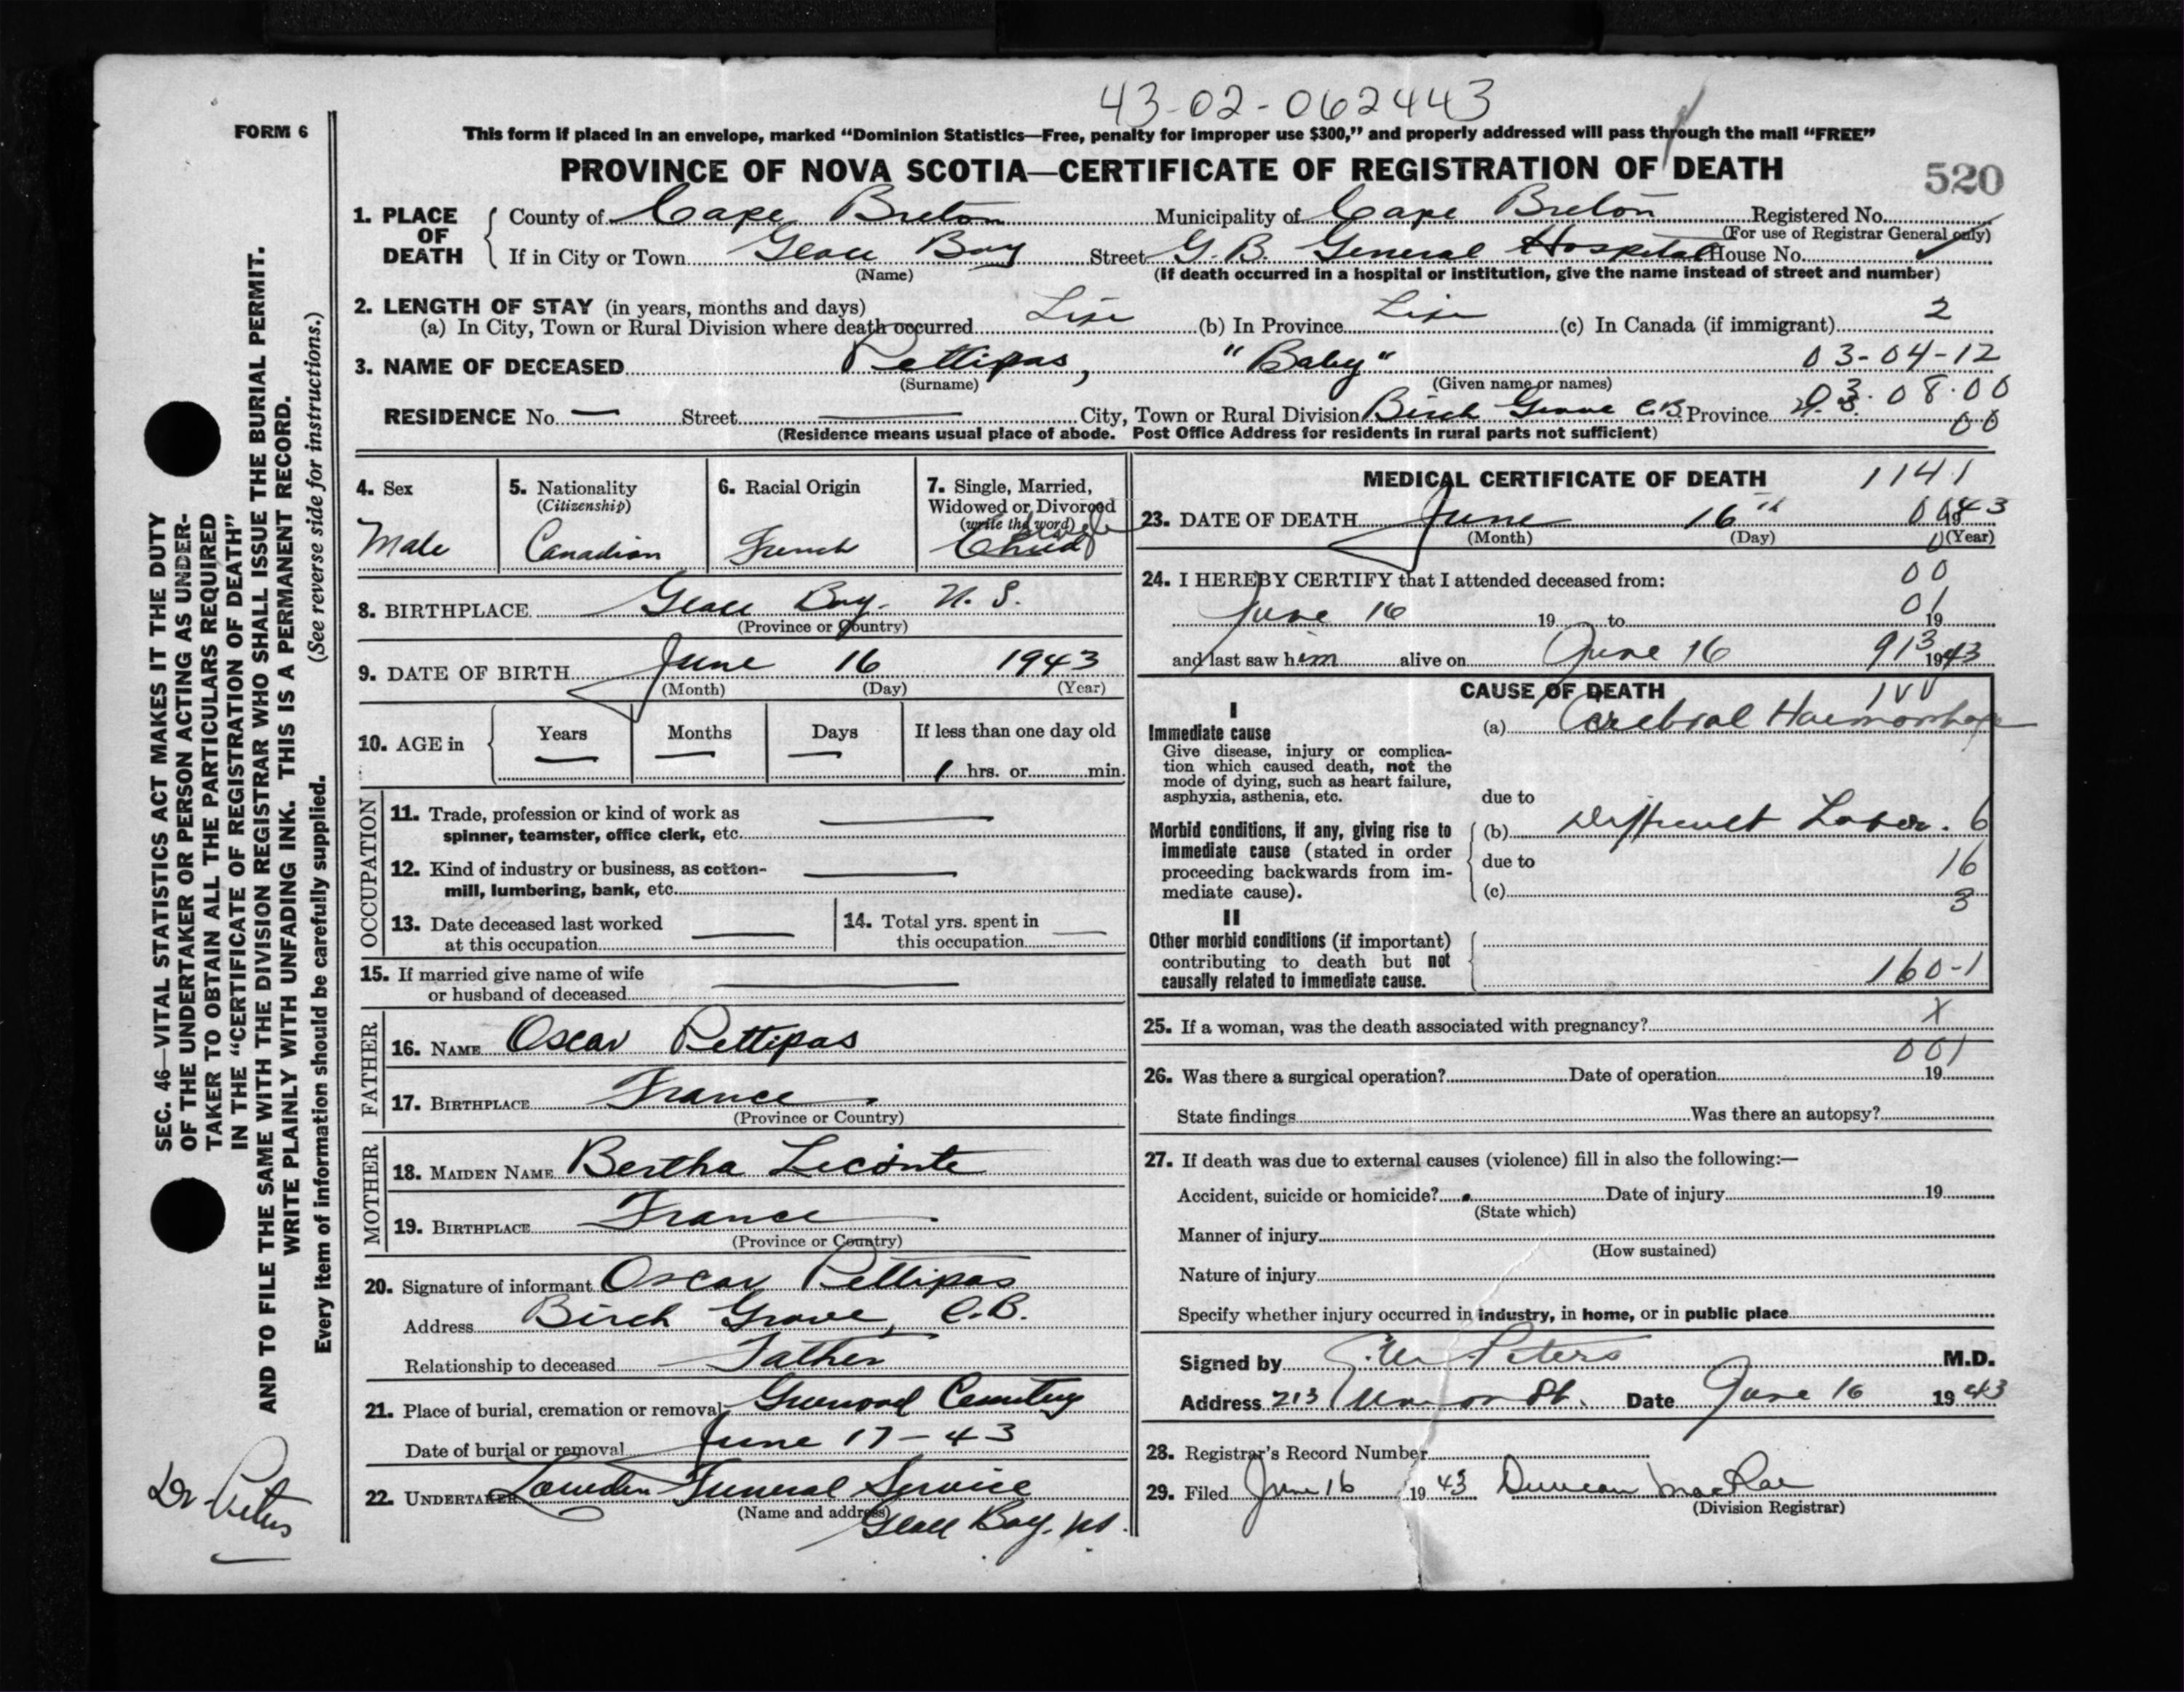 43-02-062443
FORM 6
This form if placed in an envelope, marked "Dominion Statistics—Free, penalty for improper use $300," and properly addressed will pass through the mail "FREE"
PROVINCE OF NOVA SCOTIA—CERTIFICATE OF REGISTRATION OF DEATH
520
1. PLACE OF DEATH
County of Cape Breton Municipality of Cape Breton Registered No.
(For use of Registrar General only)
If in City or Town Glace Bay Street G. B. General Hospital House No.
(Name) (If death occurred in a hospital or institution, give the name instead of street and number)
2. LENGTH OF STAY (in years, months and days)
(a) In City, Town or Rural Division where death occurred Life (b) In Province Life (c) In Canada (if immigrant) 2
3. NAME OF DECEASED Pettipas, "Baby" 03-04-12
(Surname) (Given name or names)
RESIDENCE No. — Street — City, Town or Rural Division Birch Grove C.B. Province N.S. 03.08.00
00
(Residence means usual place of abode. Post Office Address for residents in rural parts not sufficient)
4. Sex
Male
5. Nationality
(Citizenship)
Canadian
6. Racial Origin
French
7. Single, Married,
Widowed or Divorced
(write the word)
Single
Child
8. BIRTHPLACE Glace Bay. N. S.
(Province or Country)
9. DATE OF BIRTH June 16 1943
(Month) (Day) (Year)
10. AGE in
Years Months Days If less than one day old
— — — 1 hrs. or min.
OCCUPATION
11. Trade, profession or kind of work as
spinner, teamster, office clerk, etc.
12. Kind of industry or business, as cotton-
mill, lumbering, bank, etc.
13. Date deceased last worked
at this occupation
14. Total yrs. spent in
this occupation
15. If married give name of wife
or husband of deceased
FATHER
16. NAME Oscar Pettipas
17. BIRTHPLACE France
(Province or Country)
MOTHER
18. MAIDEN NAME Bertha Leconte
19. BIRTHPLACE France
(Province or Country)
20. Signature of informant Oscar Pettipas
Address Birch Grove, C.B.
Relationship to deceased Father
21. Place of burial, cremation or removal Greenwood Cemetery
Date of burial or removal June 17-43
22. UNDERTAKER Lowden Funeral Service
(Name and address)
Glace Bay. NS.
MEDICAL CERTIFICATE OF DEATH 1141
23. DATE OF DEATH June 16th 1943
(Month) (Day) (Year)
24. I HEREBY CERTIFY that I attended deceased from: 00
01
June 16 19 to 19
and last saw him alive on June 16 913 1943
CAUSE OF DEATH
I
Immediate cause
Give disease, injury or complica-
tion which caused death, not the
mode of dying, such as heart failure,
asphyxia, asthenia, etc.
(a) Cerebral Haemorrhage
due to
Morbid conditions, if any, giving rise to
immediate cause (stated in order
proceeding backwards from im-
mediate cause).
(b) Difficult Labor. 6
due to 16
(c) 3
II
Other morbid conditions (if important)
contributing to death but not
causally related to immediate cause.
160-1
25. If a woman, was the death associated with pregnancy? X
001
26. Was there a surgical operation? Date of operation 19
State findings Was there an autopsy?
27. If death was due to external causes (violence) fill in also the following:—
Accident, suicide or homicide? Date of injury 19
(State which)
Manner of injury
(How sustained)
Nature of injury
Specify whether injury occurred in industry, in home, or in public place
Signed by Peters M.D.
Address 213 Union St. Date June 16 1943
28. Registrar's Record Number
29. Filed June 16 1943 Duncan MacRae
(Division Registrar)
SEC. 46—VITAL STATISTICS ACT MAKES IT THE DUTY
OF THE UNDERTAKER OR PERSON ACTING AS UNDER-
TAKER TO OBTAIN ALL THE PARTICULARS REQUIRED
IN THE "CERTIFICATE OF REGISTRATION OF DEATH"
AND TO FILE THE SAME WITH THE DIVISION REGISTRAR WHO SHALL ISSUE THE BURIAL PERMIT.
WRITE PLAINLY WITH UNFADING INK. THIS IS A PERMANENT RECORD.
Every item of information should be carefully supplied. (See reverse side for instructions.)
Dr. Peters